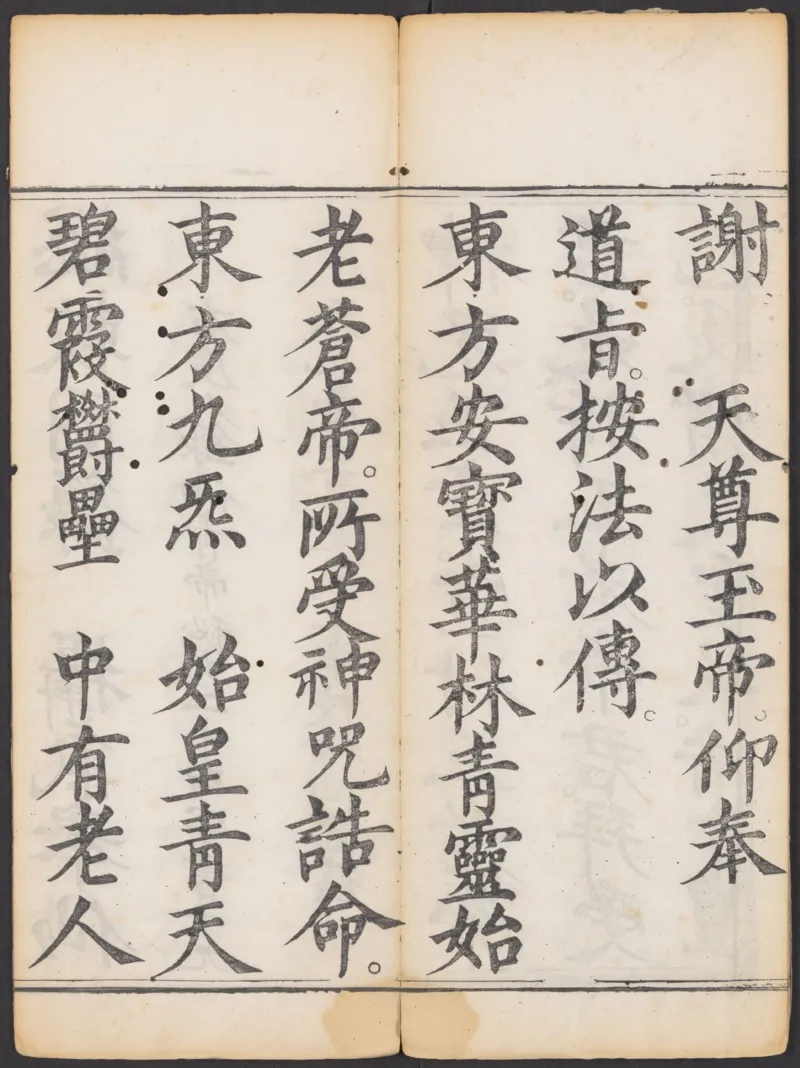 謝　天尊玉帝。仰奉
道旨。按法以傳。
東方安寶華林青靈始
老蒼帝。所受神咒誥命。
東方九炁　始皇青天
碧霞欝壘　中有老人